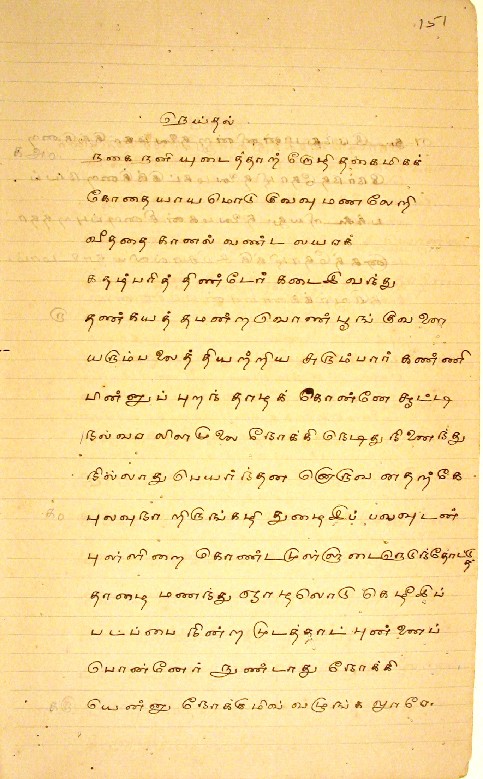 151
நெய்தல்
நகை நனி யுடைத்தாற் றோழி தகைமிகக்
கோதையாயமொடு குவவு மணலேறி
வீததை கானல் வண்ட லயரக்
கதழ்பரித் திண்டேர் கடைஇ வந்து
௫ தண்கயத் தமன்றவொண்பூங் குவளை
யரும்பலைத் தியற்றிய சுரும்பார் கண்ணி
பின்னுப் புறந் தாழக் கொன்னே சூட்டி
நல்வர லிளமுலை நோக்கி நெடிது நினைந்து
நில்லாது பெயர்ந்தன னொருவ னதற்கே
புலவுநா றிருங்கழி துழைஇப் பலவுடன்
புள்ளிறை கொண்டமுள்ளுடை நெடுந்தோட்டுத்
தாழை மணந்து ஞாழலொடு கெழீஇப்
படப்பை நின்ற முடத்தாட் புன்னைப்
பொன்னேர் நுண்டாது நோக்கி
யென்னு நோக்குமிவ் வழுங்க லூரே.